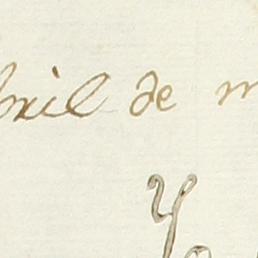 bril de m
Yo